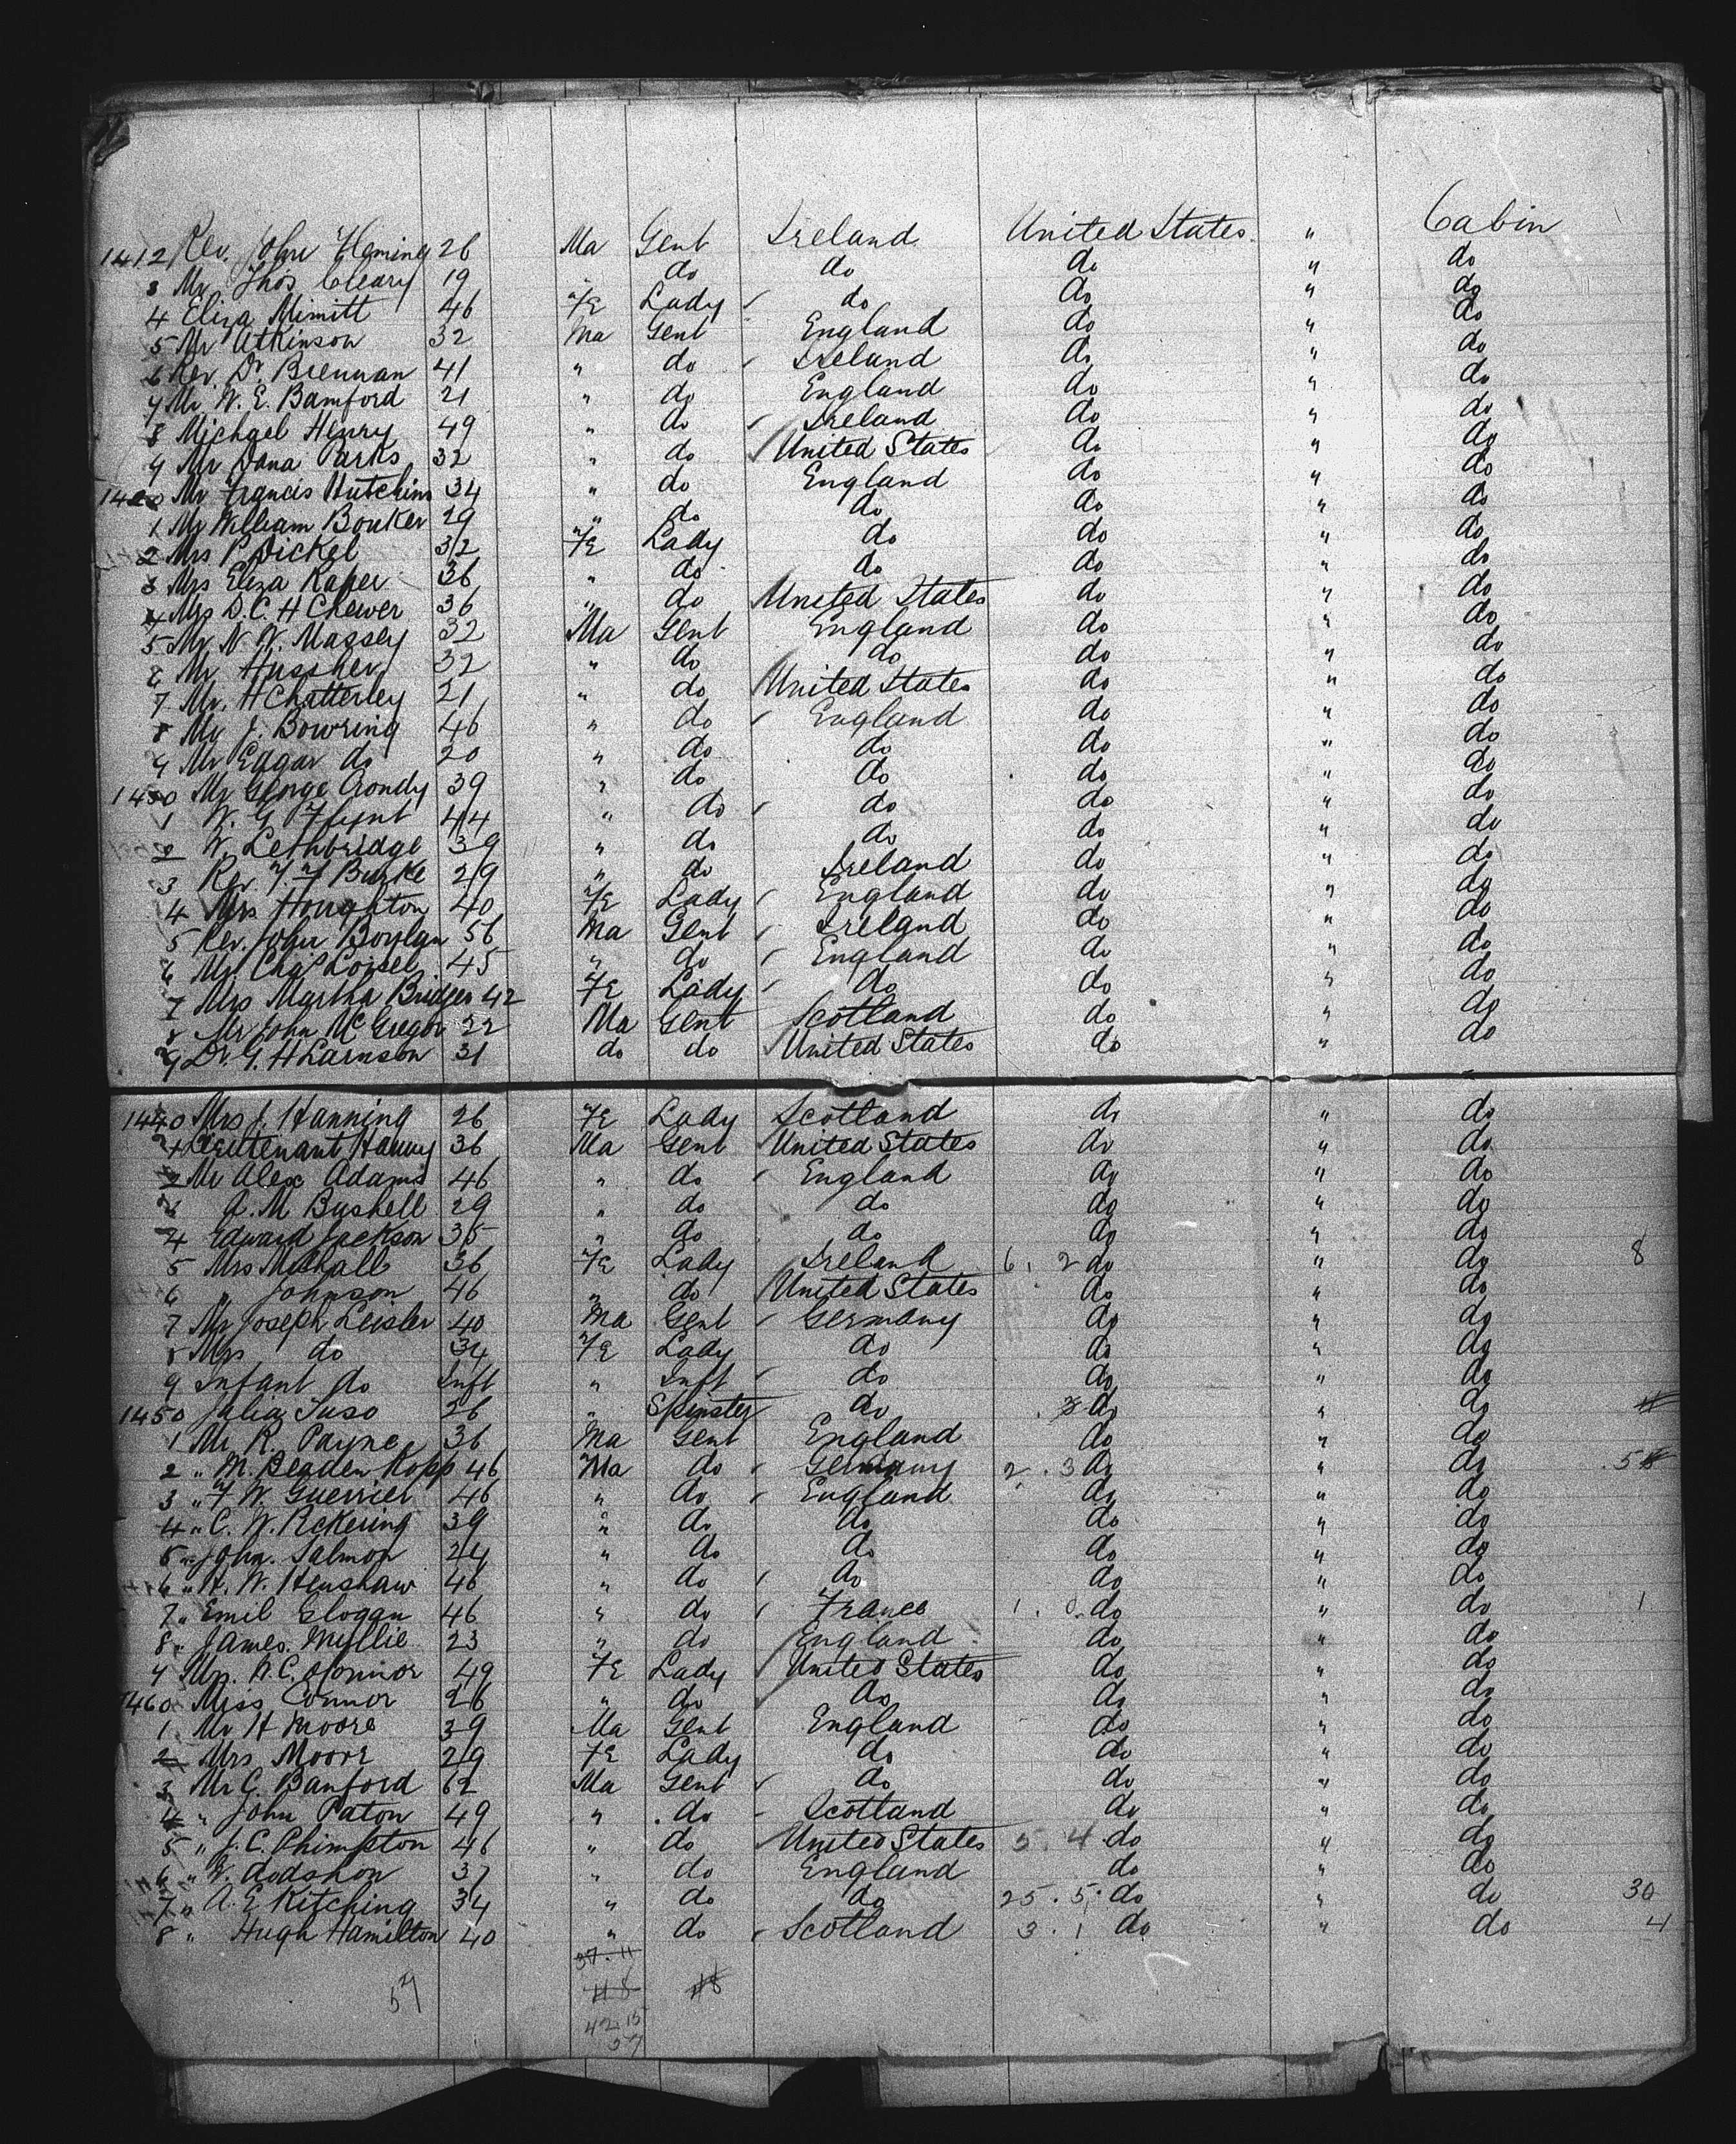 1412 Rev. John Fleming 26 Ma Gent Ireland United States " Cabin
3 Mr Thos Cleary 19 " do do do " do
4 Eliza Mimitt 46 Fe Lady do do " do
5 Mr Atkinson 32 Ma Gent England do " do
6 Rev. Dr. Brennan 41 " do Ireland do " do
7 Mr W. E. Bamford 21 " do England do " do
8 Michael Henry 49 " do Ireland do " do
9 Mr Dana Parks 32 " do United States do " do
1420 Mr Francis Hutchins 34 " do England do " do
1 Mr William Bouker 29 " do do do " do
2 Mrs P Dickel 32 Fe Lady do do " do
3 Mrs Eliza Raper 36 " do do do " do
4 Mrs D. C. H Chewer 36 " do United States do " do
5 Mr N. W. Massey 32 Ma Gent England do " do
6 Mr Hussher 32 " do do do " do
7 Mr. H Chatterley 21 " do United States do " do
8 Mr J. Bowring 46 " do England do " do
9 Mr Edgar do 20 " do do do " do
1430 Mr George Crondy 39 " do do do " do
1 W. G Flynt 44 " do do do " do
2 W. Lethbridge 39 " do do do " do
3 Rev. F. F Burke 29 " do Ireland do " do
4 Mrs Houghton 40 Fe Lady England do " do
5 Rev. John Boylan 56 Ma Gent Ireland do " do
6 Mr Chas Loisel 45 " do England do " do
7 Mrs Martha Bridger 42 Fe Lady do do " do
8 Mr John Mc Gregor 22 Ma Gent Scotland do " do
9 Dr. G. H Larnson 31 do do United States do " do
1440 Mrs J. Hanning 26 Fe Lady Scotland do " do
1 Lieutenant Harvey 36 Ma Gent United States do " do
2 Mr Alex Adams 46 " do England do " do
3 A. M Bushell 29 " do do do " do
4 Edward Jackson 35 " do do do " do
5 Mrs Mickall 36 Fe Lady Ireland 6. 2 do " do 8
6 " Johnson 46 " do United States do " do
7 Mr Joseph Leisler 40 Ma Gent Germany do " do
8 Mrs do 34 Fe Lady do do " do
9 Infant do Inft " Inft do do " do
1450 Julia Suso 26 " Spinster do do " do
1 Mr R. Payne 36 Ma Gent England do " do
2 " M. Beaden Kopp 46 Ma do Germany 2. 3 do " do 5
3 " F W. Guerrier 46 " do England do " do
4 " C. W. Pickering 39 " do do do " do
5 " John Salmon 24 " do do do " do
6 " H. W. Henshaw 46 " do do do " do
7 " Emil Glogan 46 " do France 1. do " do 1
8 " James Wyllie 23 " do England do " do
9 Mrs. N. C. OConnor 49 Fe Lady United States do " do
1460 Miss Connor 26 " do do do " do
1 Mr H Moore 39 Ma Gent England do " do
2 Mrs Moore 29 Fe Lady do do " do
3 Mr G. Banford 62 Ma Gent do do " do
4 " John Paton 49 " do Scotland do " do
5 " J. C. Chimpton 46 " do United States 5. 4 do " do
6 " W. Dodshon 37 " do England do " do
7 " A. E Kitching 34 " do do 25. 5 do " do 30
8 " Hugh Hamilton 40 " do Scotland 3. 1 do " do 4
37. 11
57
42 15
57